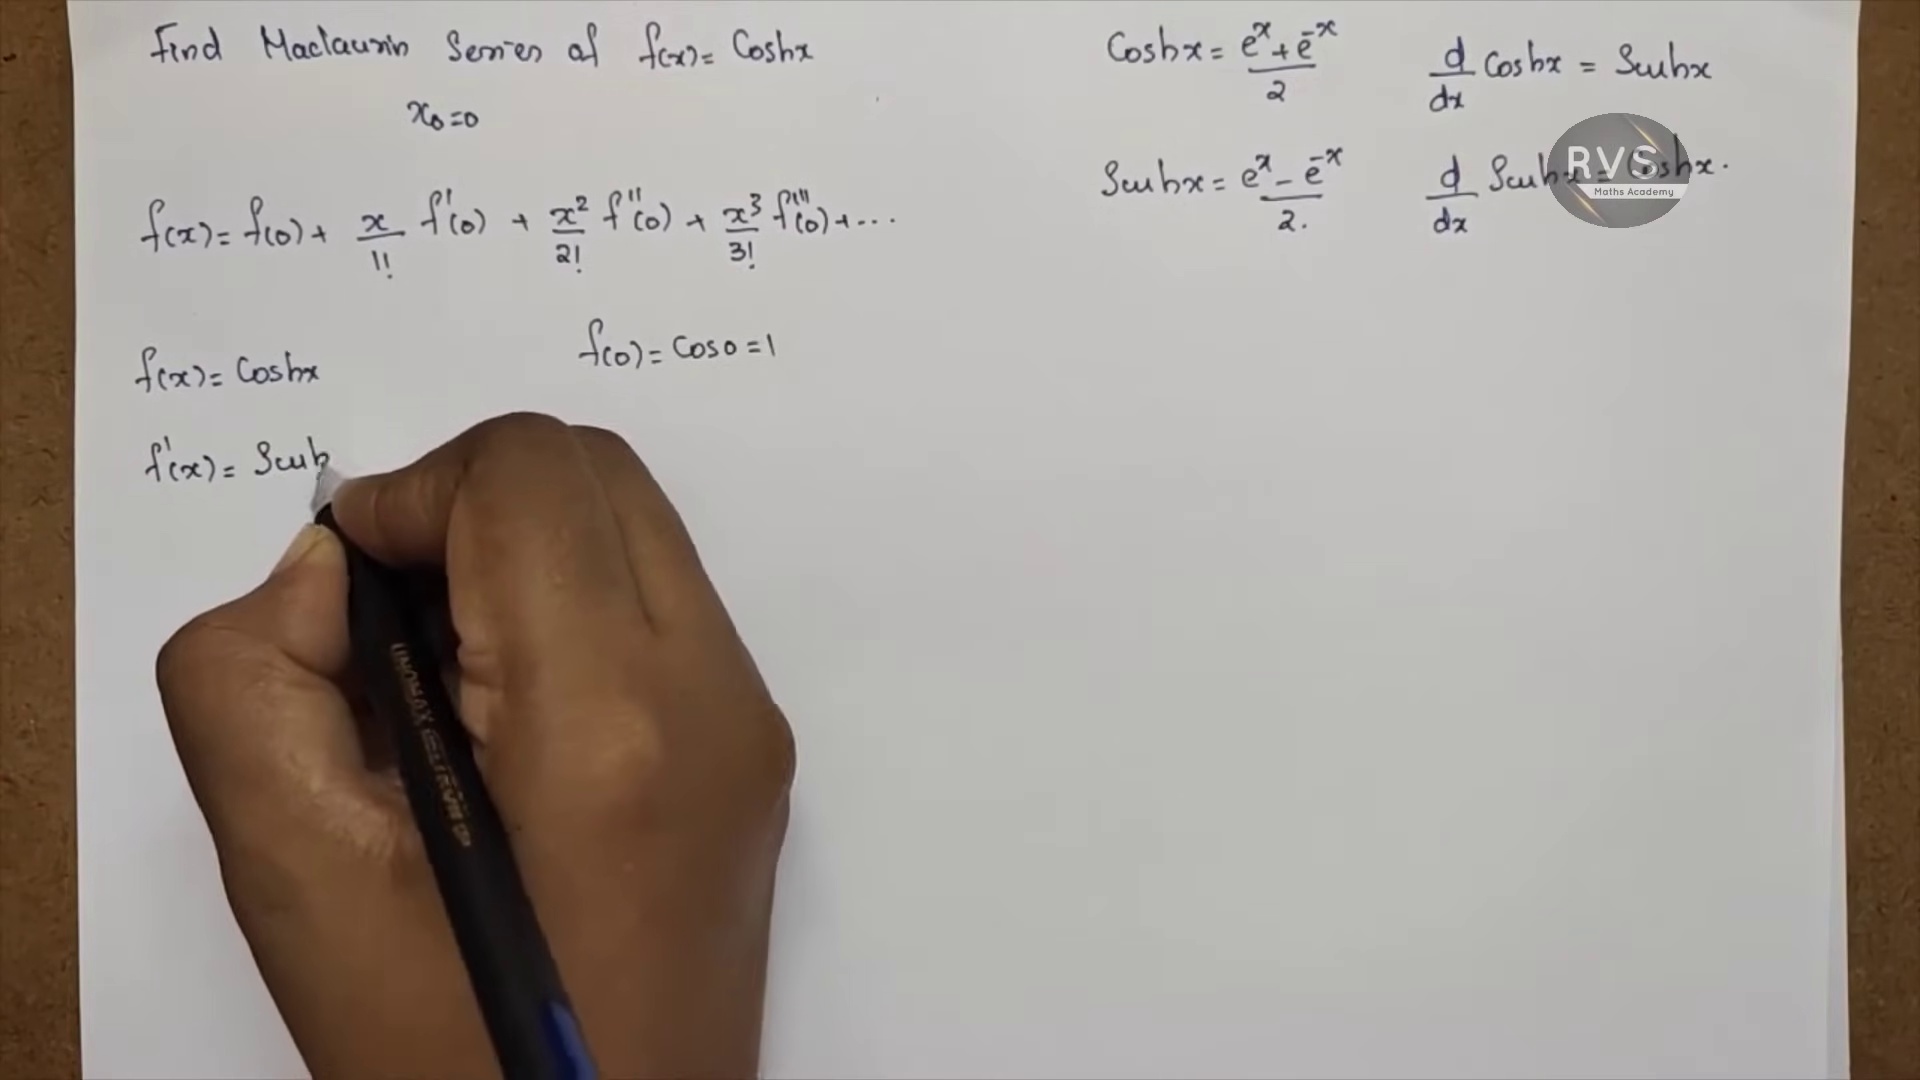 Find Maclaurin Series of f(x)= Coshx
x₀=0
f(x)= f(0)+ x/1! f'(0) + x²/2! f''(0) + x³/3! f'''(0)+...
f(x)= Coshx
f(0)= Cos0=1
f'(x)= Sinh
Coshx = (eˣ+e⁻ˣ)/2
d/dx Coshx = Sinhx
Sinhx = (eˣ-e⁻ˣ)/2.
d/dx Sinhx = Coshx.
RVS
Maths Academy
UNOMAX